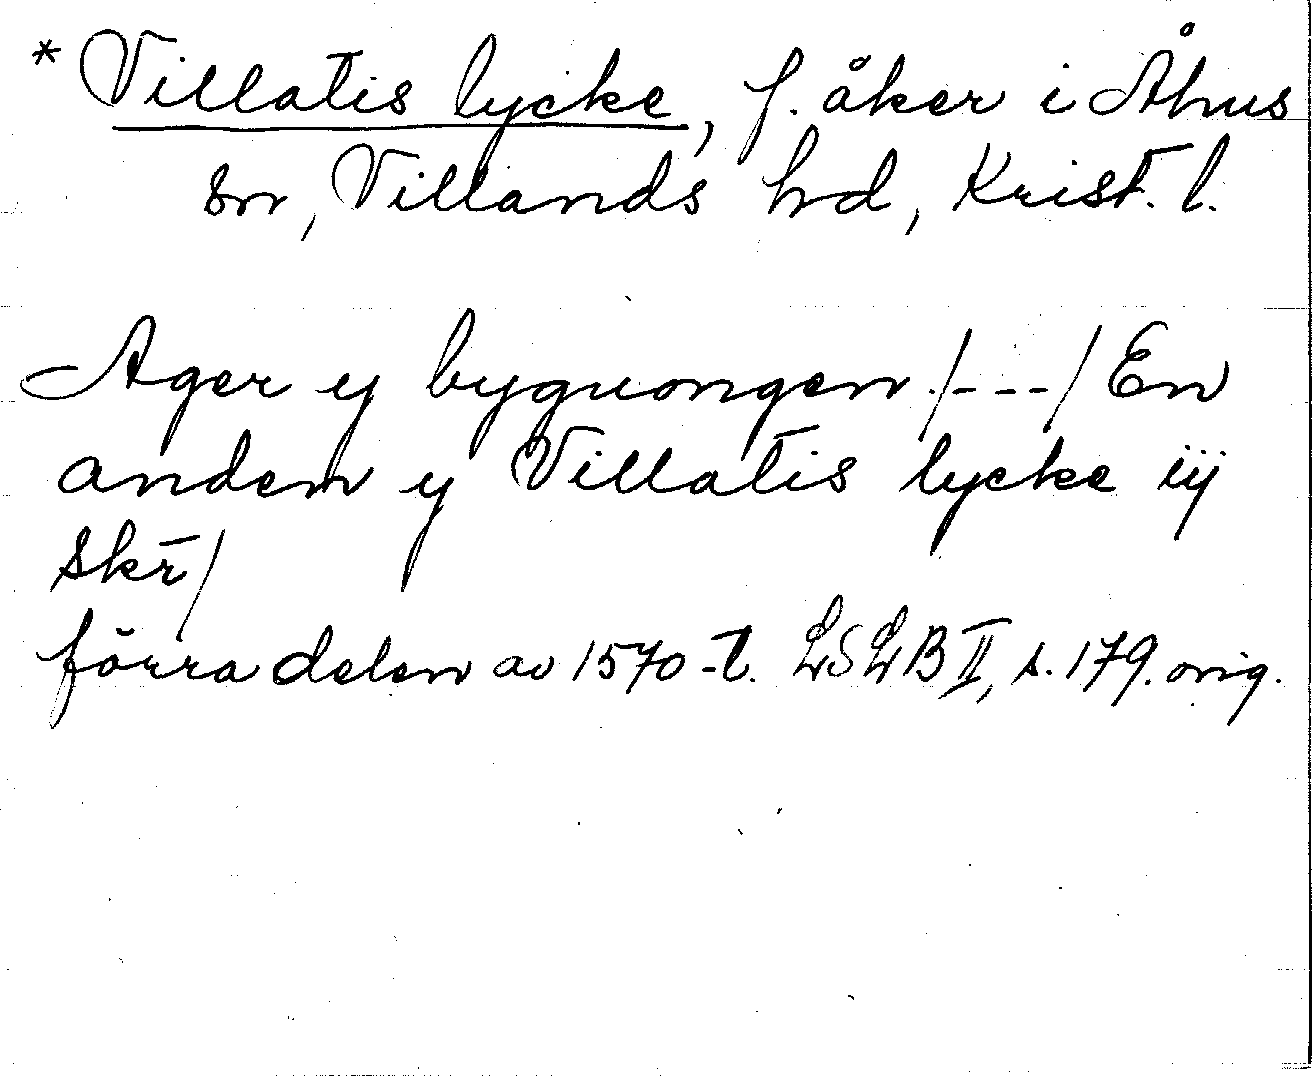 * Villatis lycke, f. åker i Åhus
sn, Villands hd, Krist. l.
Ager y byguongen /---/ En
anden y Villatis lycke iij
skr̄/
förra delen av 1570-t. LSLB II, s. 179. orig.